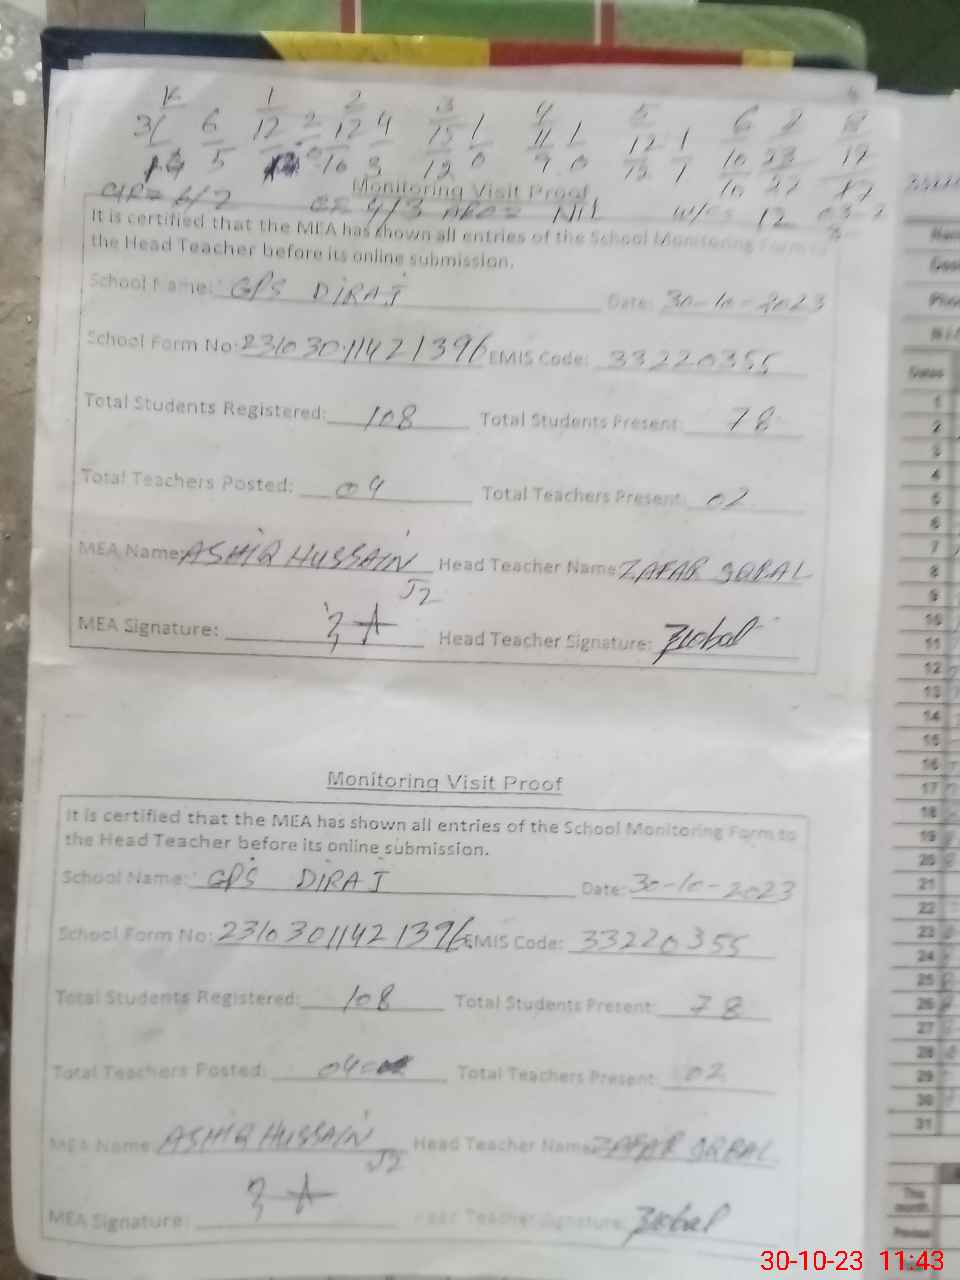 K 1 2 3 4 5 6 7 8
31 6 12 2 12 4 15 1 11 1 12 1 10 23 19
5 10 3 12 0 9 0 12 1 10 22 17
Monitoring Visit Proof
6/2 4/3 Nil 12
It is certified that the MEA has shown all entries of the School Monitoring Form to
the Head Teacher before its online submission.
School Name: GPS DIRAJ Date: 30-10-2023
School Form No: 23103011421396 EMIS Code: 33220355
Total Students Registered: 108 Total Students Present: 78
Total Teachers Posted: 04 Total Teachers Present: 02
MEA Name: ASHIQ HUSSAIN Head Teacher Name ZAFAR IQBAL
J2
MEA Signature: Head Teacher Signature: ZIqbal
Monitoring Visit Proof
It is certified that the MEA has shown all entries of the School Monitoring Form to
the Head Teacher before its online submission.
School Name: GPS DIRAJ Date: 30-10-2023
School Form No: 23103011421396 EMIS Code: 33220355
Total Students Registered: 108 Total Students Present: 78
Total Teachers Posted: 04 Total Teachers Present: 02
MEA Name: ASHIQ HUSSAIN Head Teacher Name: ZAFAR IQBAL
J2
MEA Signature: Head Teacher Signature: ZIqbal
Dates
1
2
3
4
5
6
7
8
9
10
11
12
13
14
15
16
17
18
19
20
21
22
23
24
25
26
27
28
29
30
31
This
month
Previous
30-10-23 11:43